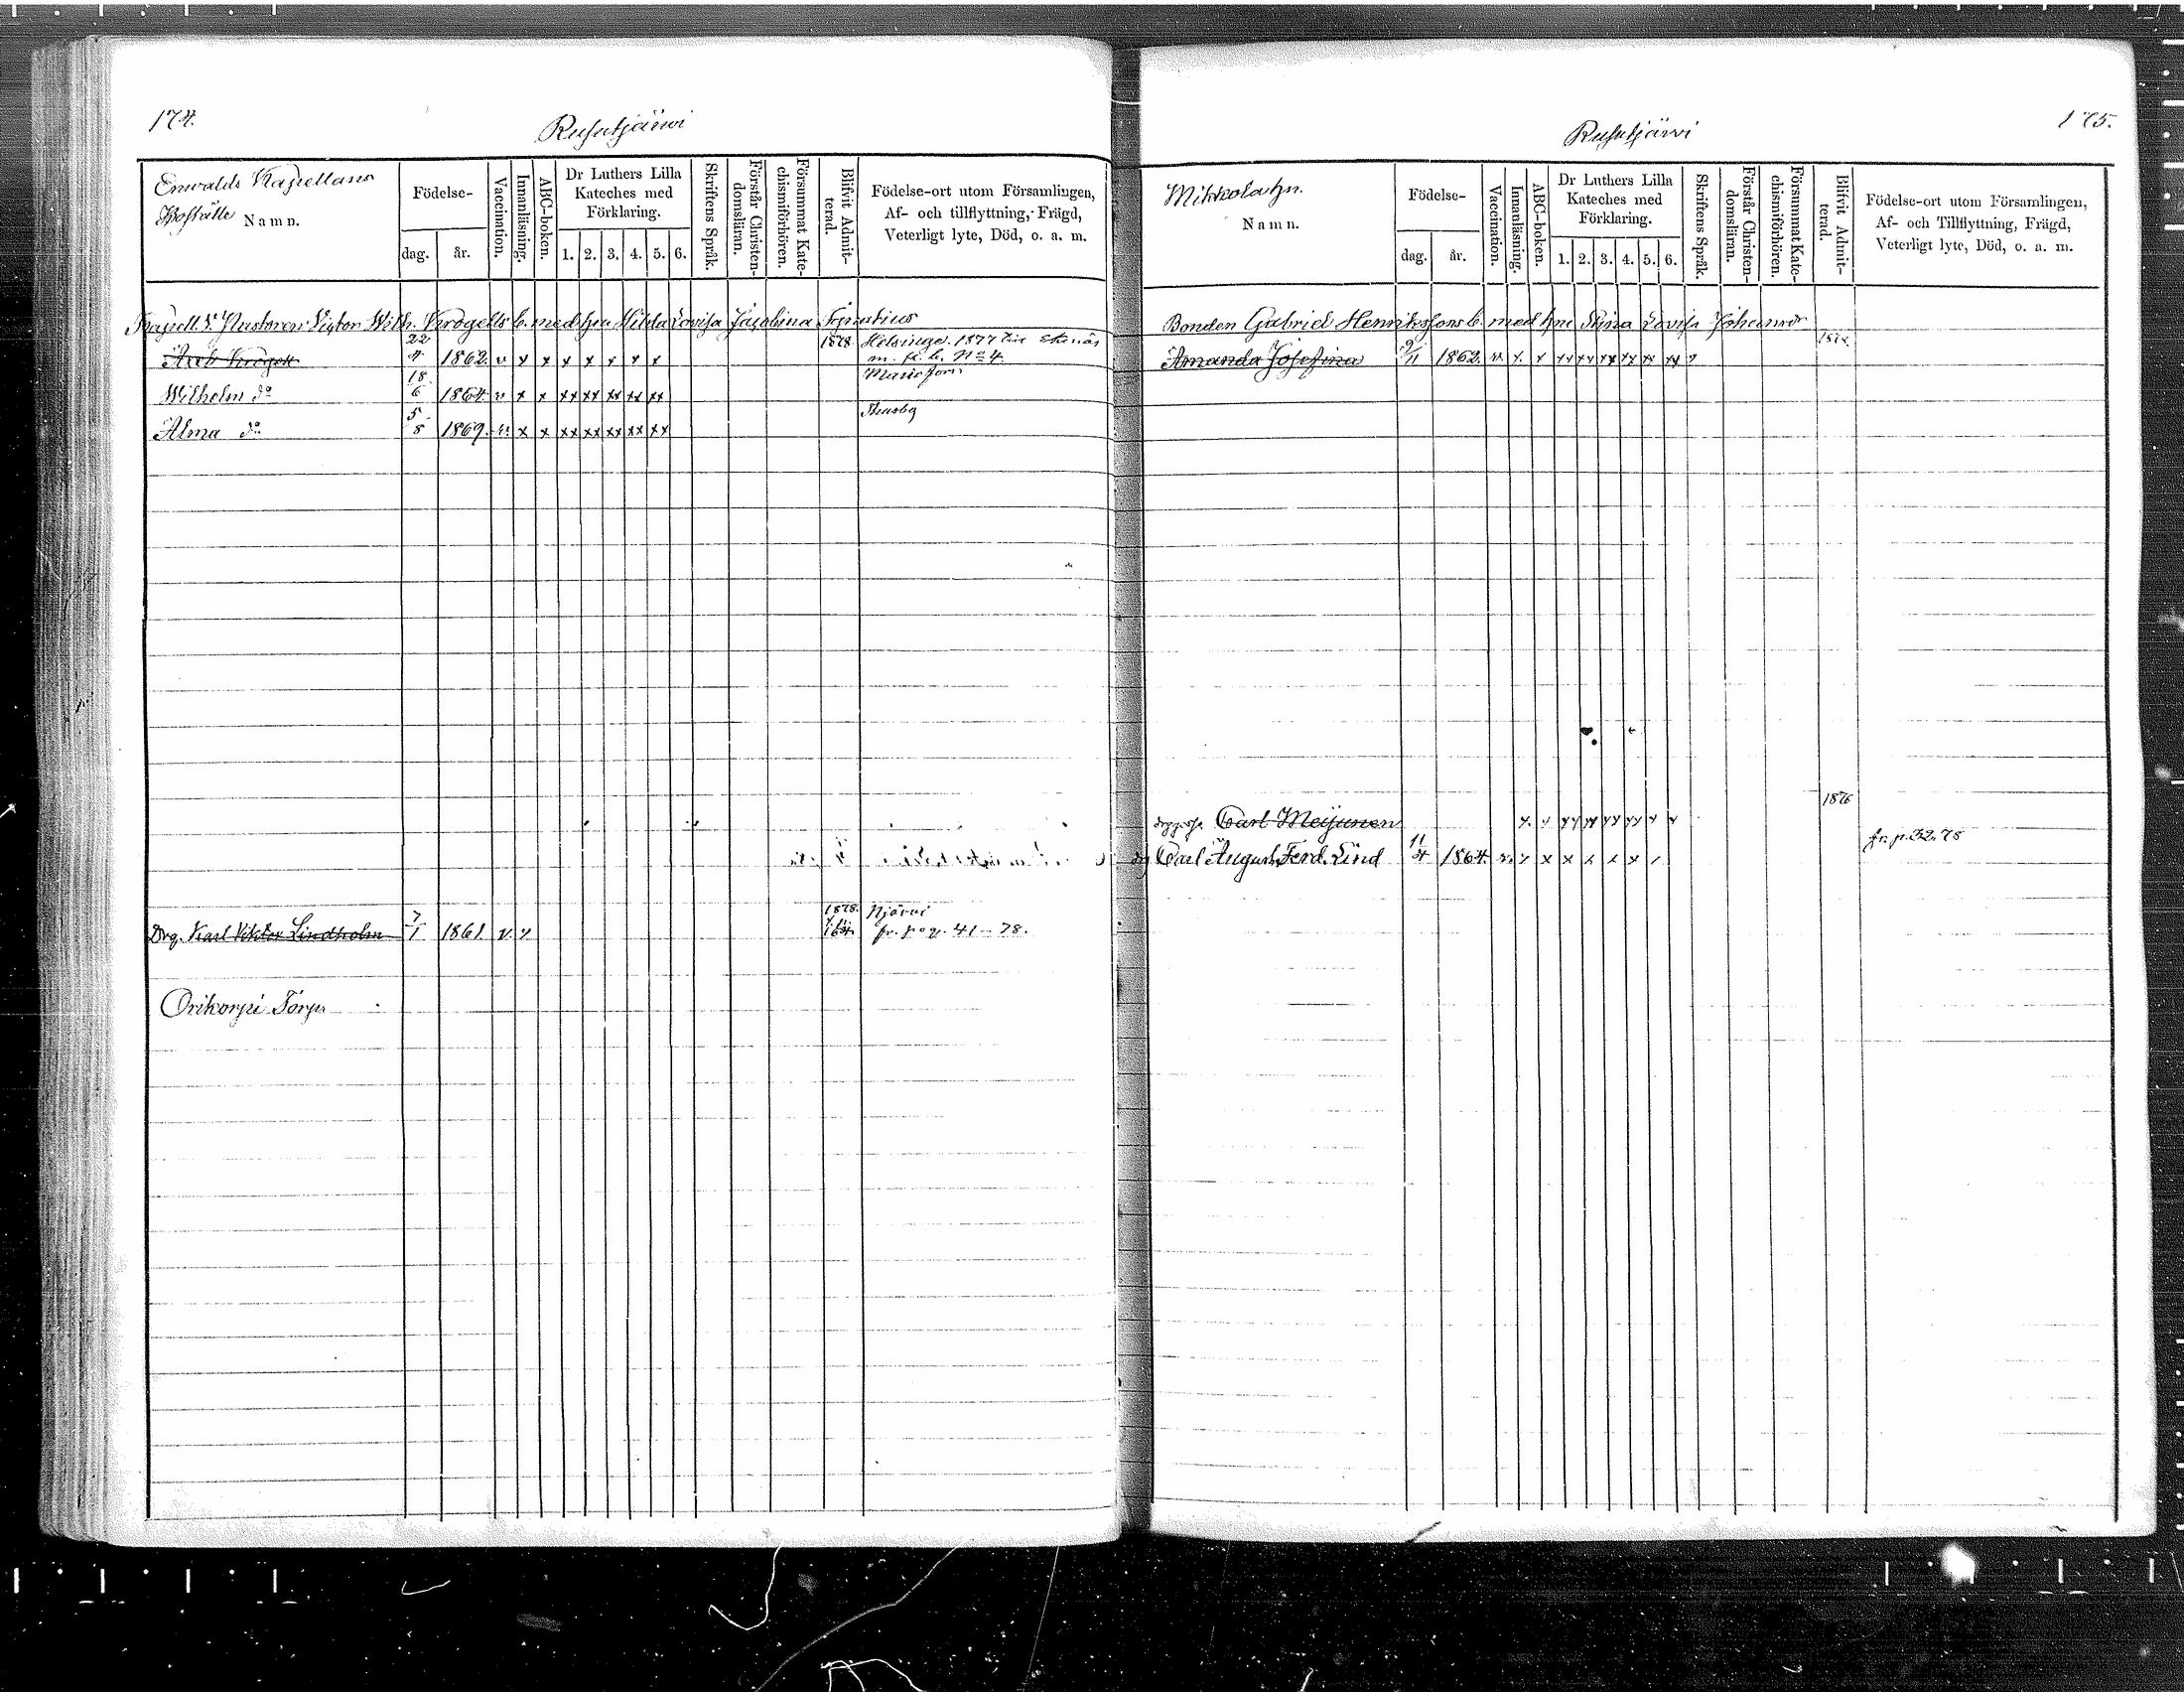 174.
Rusutjärvi
Enwalds Kapellans
Boställe
Namn.
Födelse-
dag.
år.
Vaccination.
Innanläsning.
ABC-boken.
Dr Luthers Lilla
Kateches med
Förklaring.
1. 2. 3. 4. 5. 6.
Skriftens Språk.
Förstår Christen-
domsläran.
Försummat Kate-
chismiförhören.
Blifvit Admit-
terad.
Födelse-ort utom Församlingen,
Af- och tillflyttning, Frägd,
Veterligt lyte, Död, o. a. m.
Kapell. V. Pastoren Viktor Wilh. Krogells b. med hu Hilda Lovisa Jacobina
Axel Krogell 22/4 1862 v x x x x x x x 1878 Helsinge. 1877
m. fl. b. No 4
Wilhelm do 18/6 1864 v x x xx xx xx xx xx
Alma do 5/8 1869. v. x x xx xx xx xx xx Thusby
Drg. Karl Viktor Lindholm 7/1 1861 v. x 1878. Njärvi
fr. pag. 41 - 78.
Orikorpi Torp
175.
Rusutjärvi
Mikkola hn.
Namn.
Födelse-
dag.
år.
Vaccination.
Innanläsning.
ABC-boken.
Dr Luthers Lilla
Kateches med
Förklaring.
1. 2. 3. 4. 5. 6.
Skriftens Språk.
Förstår Christen-
domsläran.
Försummat Kate-
chismiförhören.
Blifvit Admit-
terad.
Födelse-ort utom Församlingen,
Af- och Tillflyttning, Frägd,
Veterligt lyte, Död, o. a. m.
Bonden Gabriel Henrikssons b. med hu Stina Lovisa Johansdr
Amanda Josefina 9/11 1862. v. x. x xx xx xx xx xx xx x
Carl Meijunen x. x xx xx xx xx x x 1876
Carl August Ferd. Lind 11/4 1864 v. x x x x x x fr. p. 32. 78